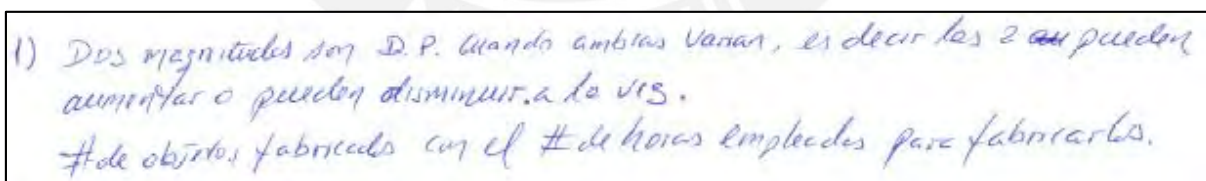 1) Dos magnitudes son D.P. cuando ambas varian, es decir las 2 pueden
aumentar o pueden disminuir a la vez.
# de objetos fabricados con el # de horas empleadas para fabricarlos.